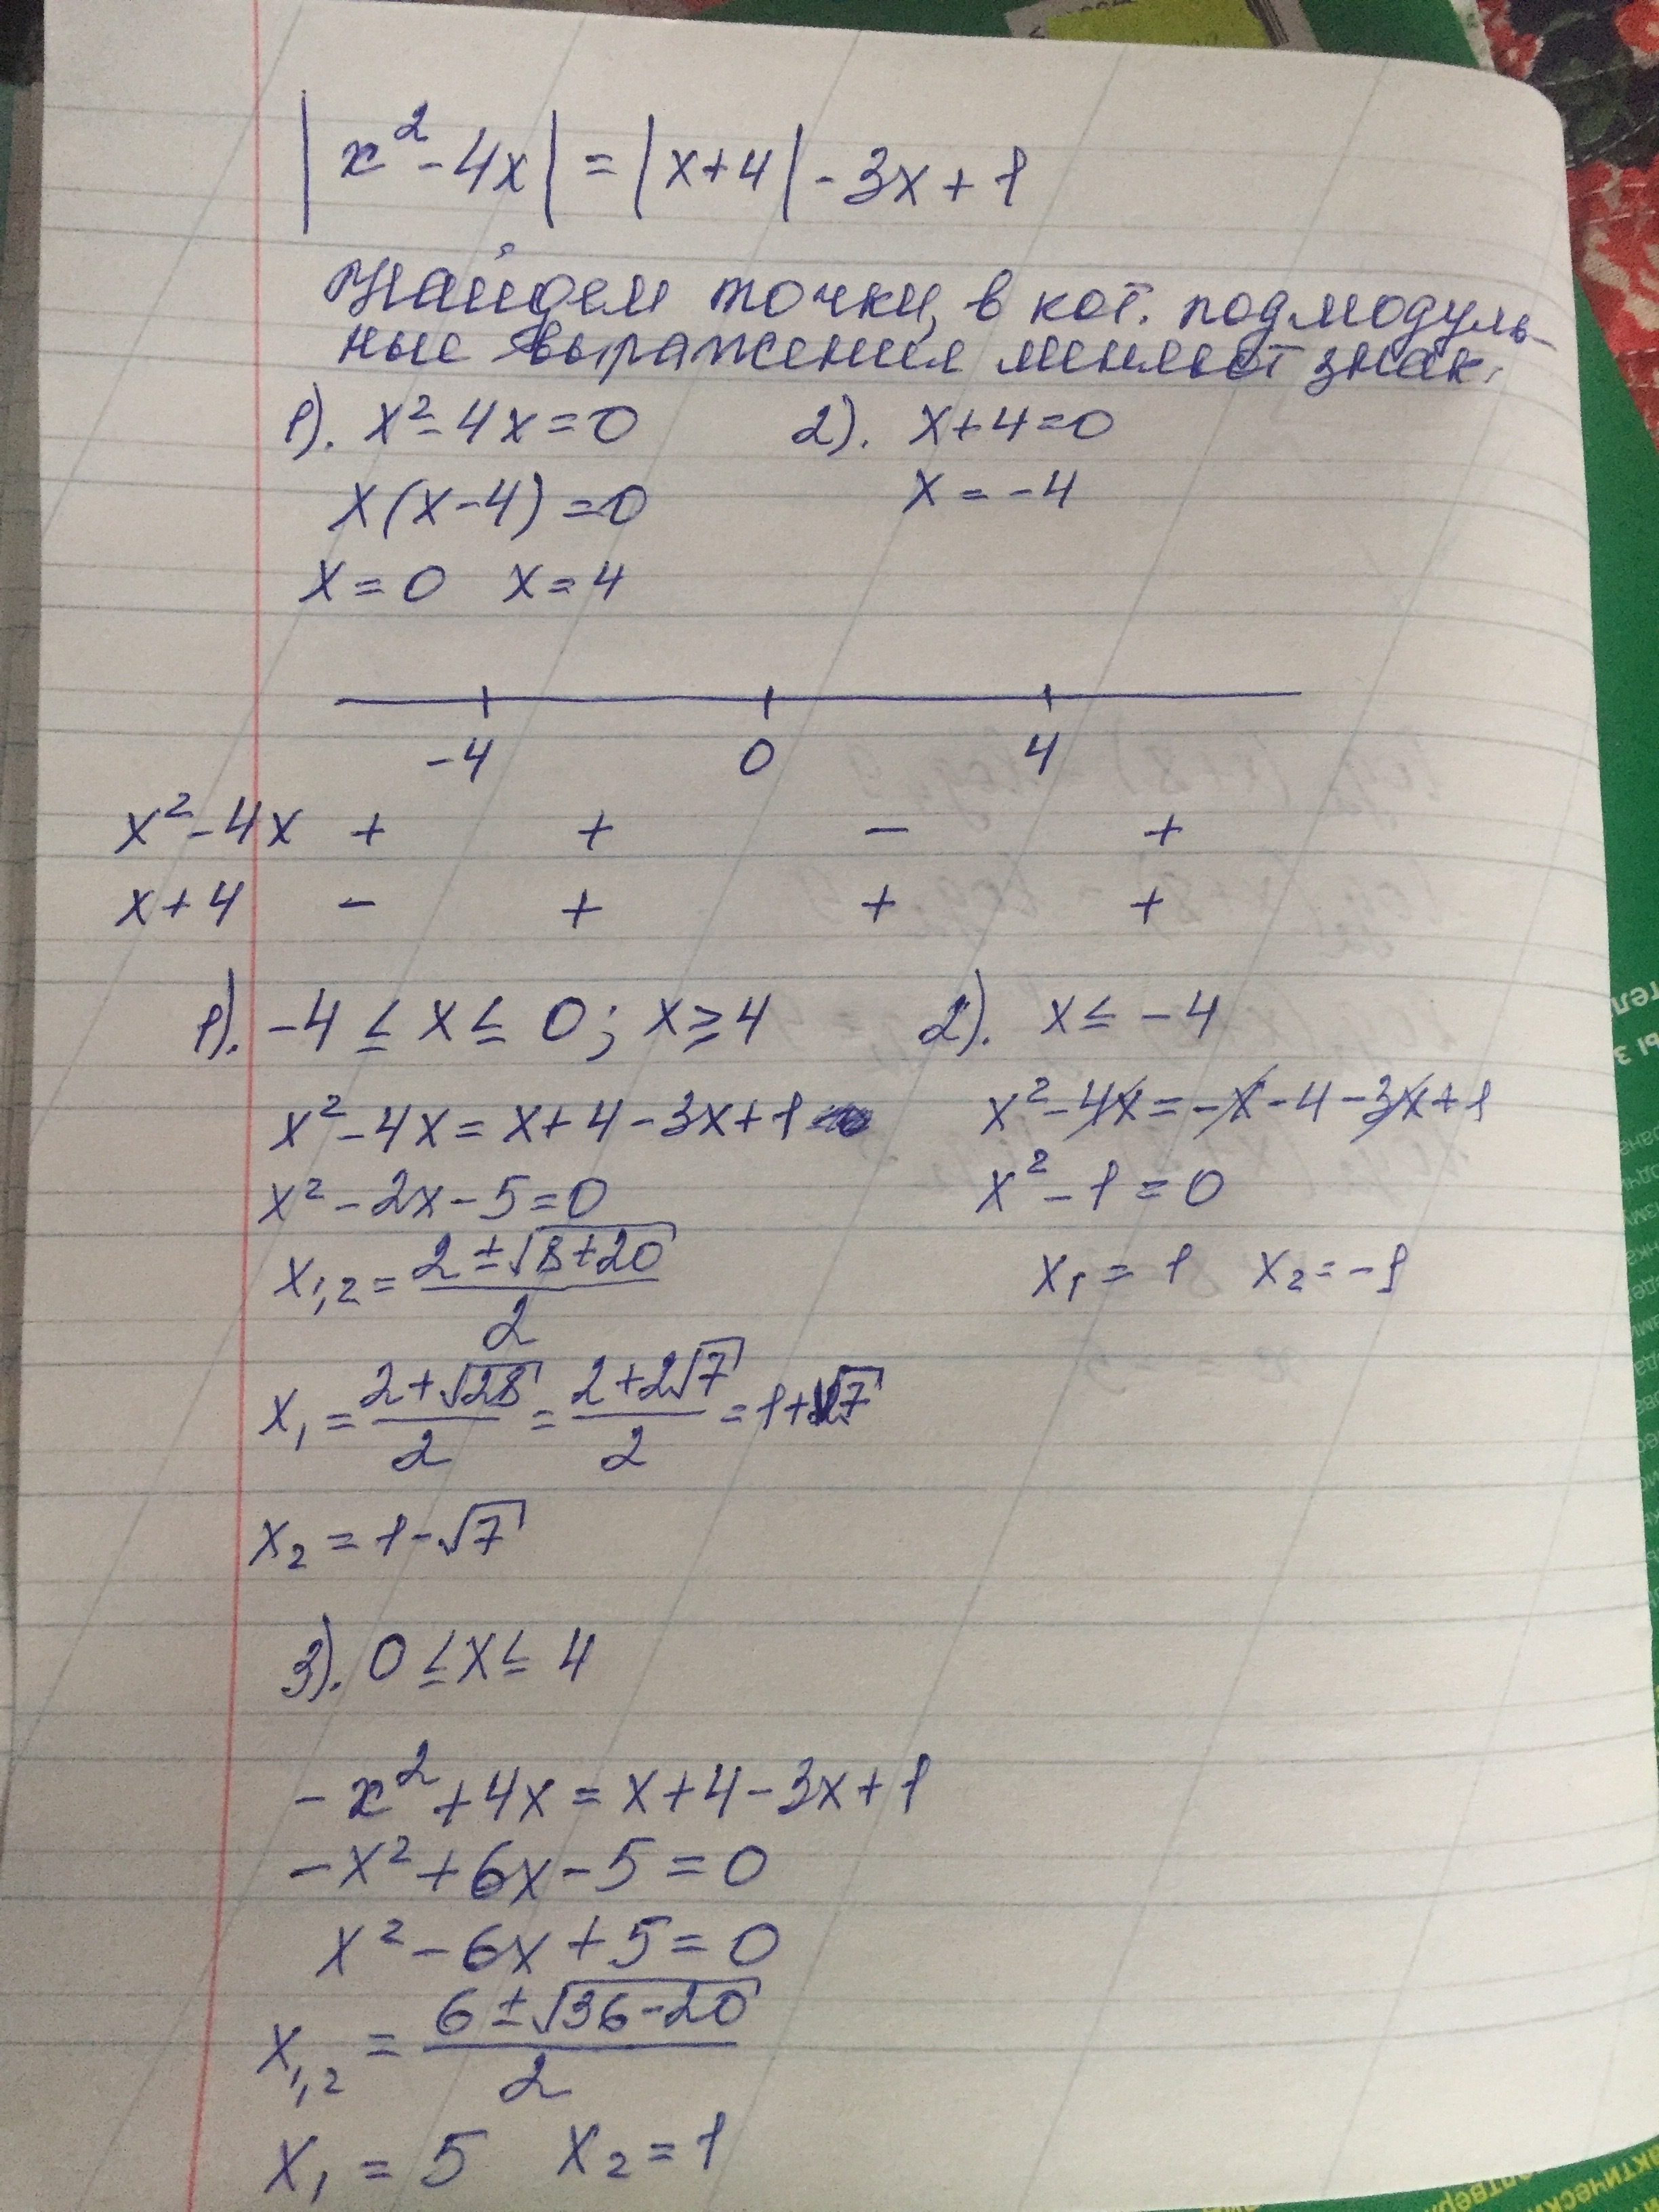 |x² - 4x| = |x+4| - 3x + 1
Найдем точки, в кот. подмодуль-
ные выражения меняют знак.
1). x² - 4x = 0 2). x+4=0
x(x-4) = 0 x = -4
x = 0 x = 4
-4 0 4
x² - 4x + + - +
x+4 - + + +
1). -4 ≤ x ≤ 0; x ≥ 4 2). x ≤ -4
x² - 4x = x+4 - 3x + 1 x² - 4x = -x - 4 - 3x + 1
x² - 2x - 5 = 0 x² - 1 = 0
x1,2 = (2 ± √8+20)/2 x₁ = 1 x₂ = -1
x₁ = (2+√28)/2 = (2+2√7)/2 = 1+√7
x₂ = 1 - √7
3). 0 ≤ x ≤ 4
-x² + 4x = x+4 - 3x + 1
-x² + 6x - 5 = 0
x² - 6x + 5 = 0
x1,2 = (6 ± √36-20)/2
x₁ = 5 x₂ = 1